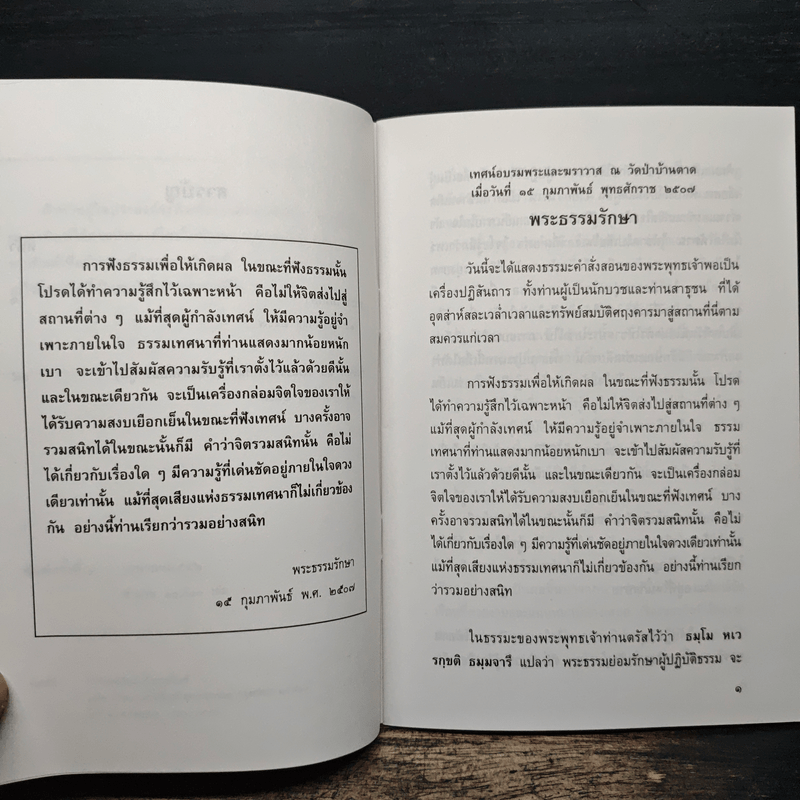 การฟังธรรมเพื่อให้เกิดผล ในขณะที่ฟังธรรมนั้น
โปรดได้ทำความรู้สึกไว้เฉพาะหน้า คือไม่ให้จิตส่งไปสู่
สถานที่ต่าง ๆ แม้ที่สุดผู้กำลังเทศน์ ให้มีความรู้อยู่จำ
เพาะภายในใจ ธรรมเทศนาที่ท่านแสดงมากน้อยหนัก
เบา จะเข้าไปสัมผัสความรับรู้ที่เราตั้งไว้แล้วด้วยดีนั้น
และในขณะเดียวกัน จะเป็นเครื่องกล่อมจิตใจของเราให้
ได้รับความสงบเยือกเย็นในขณะที่ฟังเทศน์ บางครั้งอาจ
รวมสนิทได้ในขณะนั้นก็มี คำว่าจิตรวมสนิทนั้น คือไม่
ได้เกี่ยวกับเรื่องใด ๆ มีความรู้ที่เด่นชัดอยู่ภายในใจดวง
เดียวเท่านั้น แม้ที่สุดเสียงแห่งธรรมเทศนาก็ไม่เกี่ยวข้อง
กัน อย่างนี้ท่านเรียกว่ารวมอย่างสนิท
พระธรรมรักษา
๑๕ กุมภาพันธ์ พ.ศ. ๒๕๐๗
เทศน์อบรมพระและฆราวาส ณ วัดป่าบ้านตาด
เมื่อวันที่ ๑๕ กุมภาพันธ์ พุทธศักราช ๒๕๐๗
พระธรรมรักษา
วันนี้จะได้แสดงธรรมะคำสั่งสอนของพระพุทธเจ้าพอเป็น
เครื่องปฏิสันถาร ทั้งท่านผู้เป็นนักบวชและท่านสาธุชน ที่ได้
อุตส่าห์สละเวล่ำเวลาและทรัพย์สมบัติศฤงคารมาสู่สถานที่นี่ตาม
สมควรแก่เวลา
การฟังธรรมเพื่อให้เกิดผล ในขณะที่ฟังธรรมนั้น โปรด
ได้ทำความรู้สึกไว้เฉพาะหน้า คือไม่ให้จิตส่งไปสู่สถานที่ต่าง ๆ
แม้ที่สุดผู้กำลังเทศน์ ให้มีความรู้อยู่จำเพาะภายในใจ ธรรม
เทศนาที่ท่านแสดงมากน้อยหนักเบา จะเข้าไปสัมผัสความรับรู้ที่
เราตั้งไว้แล้วด้วยดีนั้น และในขณะเดียวกัน จะเป็นเครื่องกล่อม
จิตใจของเราให้ได้รับความสงบเยือกเย็นในขณะที่ฟังเทศน์ บาง
ครั้งอาจรวมสนิทได้ในขณะนั้นก็มี คำว่าจิตรวมสนิทนั้น คือไม่
ได้เกี่ยวกับเรื่องใด ๆ มีความรู้ที่เด่นชัดอยู่ภายในใจดวงเดียวเท่านั้น
แม้ที่สุดเสียงแห่งธรรมเทศนาก็ไม่เกี่ยวข้องกัน อย่างนี้ท่านเรียก
ว่ารวมอย่างสนิท
ในธรรมะของพระพุทธเจ้าท่านตรัสไว้ว่า ธมฺโม หเว
รกฺขติ ธมฺมจารี แปลว่า พระธรรมย่อมรักษาผู้ปฏิบัติธรรม จะ
๑